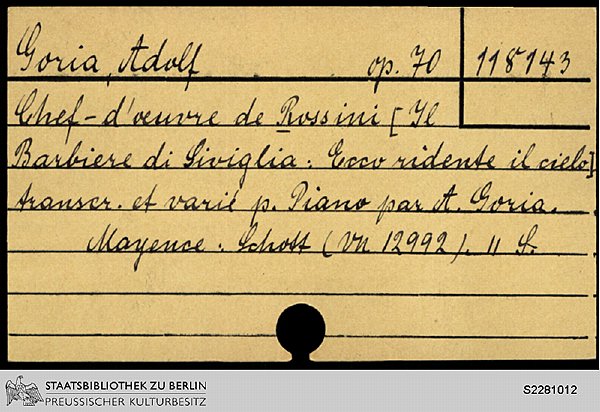 Goria, Adolf op. 70 118143
Chef-d'oeuvre de Rossini [Il
Barbiere di Siviglia: Ecco ridente il cielo]
transcr. et varié p. Piano par A. Goria.
Mayence: Schott (VN 12992). 11 S.
STAATSBIBLIOTHEK ZU BERLIN
PREUSSISCHER KULTURBESITZ
S2281012